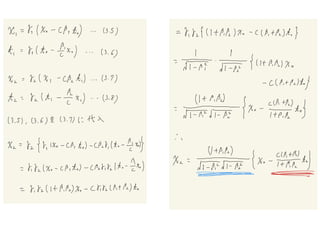 x₁ = γ₁(x₀ − cβ₁t₀) … (3.5)
t₁ = γ₁(t₀ − β₁/c x₀) … (3.6)
x₂ = γ₂(x₁ − cβ₂t₁) … (3.7)
t₂ = γ₂(t₁ − β₂/c x₁) … (3.8)
(3.5), (3.6)を(3.7)に代入
x₂ = γ₂{γ₁(x₀ − cβ₁t₀) − cβ₂γ₁(t₀ − β₁/c x₀)}
= γ₁γ₂(x₀ − cβ₁t₀) − cβ₂γ₁γ₂(t₀ − β₁/c x₀)
= γ₁γ₂(1+β₁β₂)x₀ − cγ₁γ₂(β₁+β₂)t₀
= γ₁γ₂{(1+β₁β₂)x₀ − c(β₁+β₂)t₀}
= 1/√(1−β₁²) · 1/√(1−β₂²) {(1+β₁β₂)x₀
− c(β₁+β₂)t₀}
= (1+β₁β₂)/(√(1−β₁²)√(1−β₂²)) {x₀ − c(β₁+β₂)/(1+β₁β₂) t₀}
∴
x₂ = (1+β₁β₂)/(√(1−β₁²)√(1−β₂²)) {x₀ − c(β₁+β₂)/(1+β₁β₂) t₀}